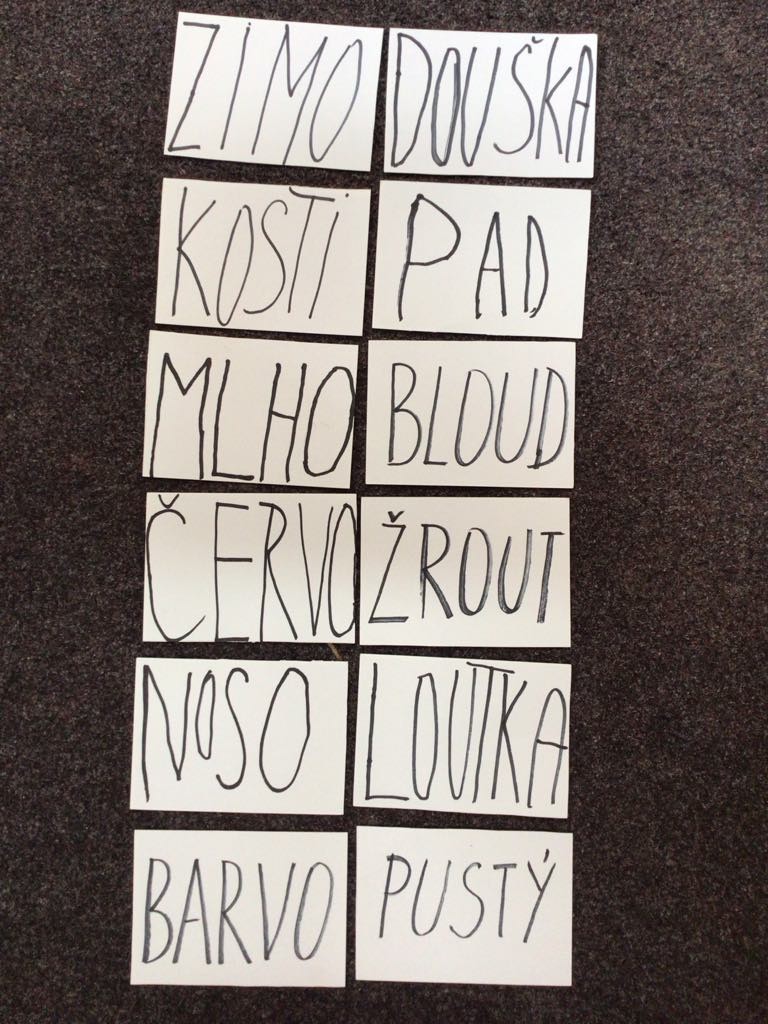 ZIMO DOUŠKA
KOSTI PAD
MLHO BLOUD
ČERVO ŽROUT
NOSO LOUTKA
BARVO PUSTÝ